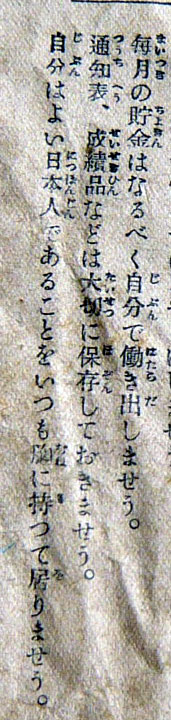 毎月の貯金はなるべく自分で働き出しませう。
通知表、成績品などは大切に保存しておきませう。
自分はよい日本人であることをいつも胸に持つて居りませう。